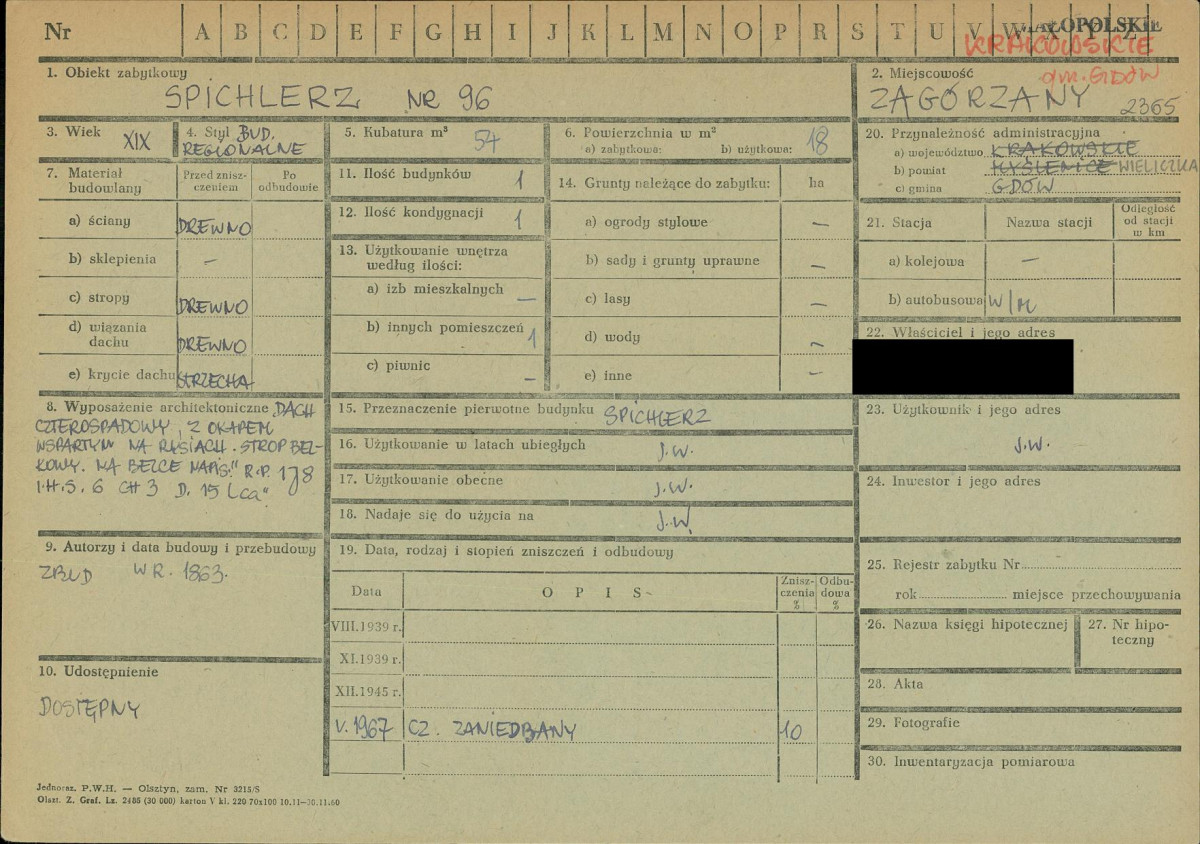 Nr A B C D E F G H I J K L M N O P R S T U V W X Y Z
MAŁOPOLSKIE
KRAKOWSKIE
gm. GDÓW
1. Obiekt zabytkowy
SPICHLERZ NR 96
2. Miejscowość
ZAGÓRZANY 2365
3. Wiek XIX
4. Styl BUD.
REGIONALNE
5. Kubatura m³ 54
6. Powierzchnia w m²
a) zabytkowa: b) użytkowa: 18
7. Materiał budowlany
Przed zniszczeniem
Po odbudowie
a) ściany DREWNO
b) sklepienia —
c) stropy DREWNO
d) wiązania dachu DREWNO
e) krycie dachu STRZECHA
8. Wyposażenie architektoniczne DACH
CZTEROSPADOWY, Z OKAPEM
WSPARTYM NA RYSIACH. STROP BEL-
KOWY. NA BELCE NAPIS: "R.P. 1J8
I.H.S. 6 CH 3 D. 15 Lca"
9. Autorzy i data budowy i przebudowy
ZBUD W R. 1863.
10. Udostępnienie
DOSTĘPNY
11. Ilość budynków 1
12. Ilość kondygnacji 1
13. Użytkowanie wnętrza
według ilości:
a) izb mieszkalnych —
b) innych pomieszczeń 1
c) piwnic —
14. Grunty należące do zabytku: ha
a) ogrody stylowe —
b) sady i grunty uprawne —
c) lasy —
d) wody —
e) inne —
15. Przeznaczenie pierwotne budynku SPICHLERZ
16. Użytkowanie w latach ubiegłych J.W.
17. Użytkowanie obecne J.W.
18. Nadaje się do użycia na J.W.
19. Data, rodzaj i stopień zniszczeń i odbudowy
Data O P I S Zniszczenia % Odbudowa %
VIII.1939 r.
XI.1939 r.
XII.1945 r.
V. 1967 CZ. ZANIEDBANY 10
20. Przynależność administracyjna
a) województwo KRAKOWSKIE
b) powiat MYŚLENICE WIELICZKA
c) gmina GDÓW
21. Stacja Nazwa stacji Odległość od stacji w km
a) kolejowa —
b) autobusowa W/M
22. Właściciel i jego adres
23. Użytkownik i jego adres
J.W.
24. Inwestor i jego adres
25. Rejestr zabytku Nr
rok miejsce przechowywania
26. Nazwa księgi hipotecznej
27. Nr hipoteczny
28. Akta
29. Fotografie
30. Inwentaryzacja pomiarowa
Jednoraz. P.W.H. — Olsztyn, zam. Nr 3215/S
Olszt. Z. Graf. Lz. 2485 (30 000) karton V kl. 220 70x100 10.11—30.11.60